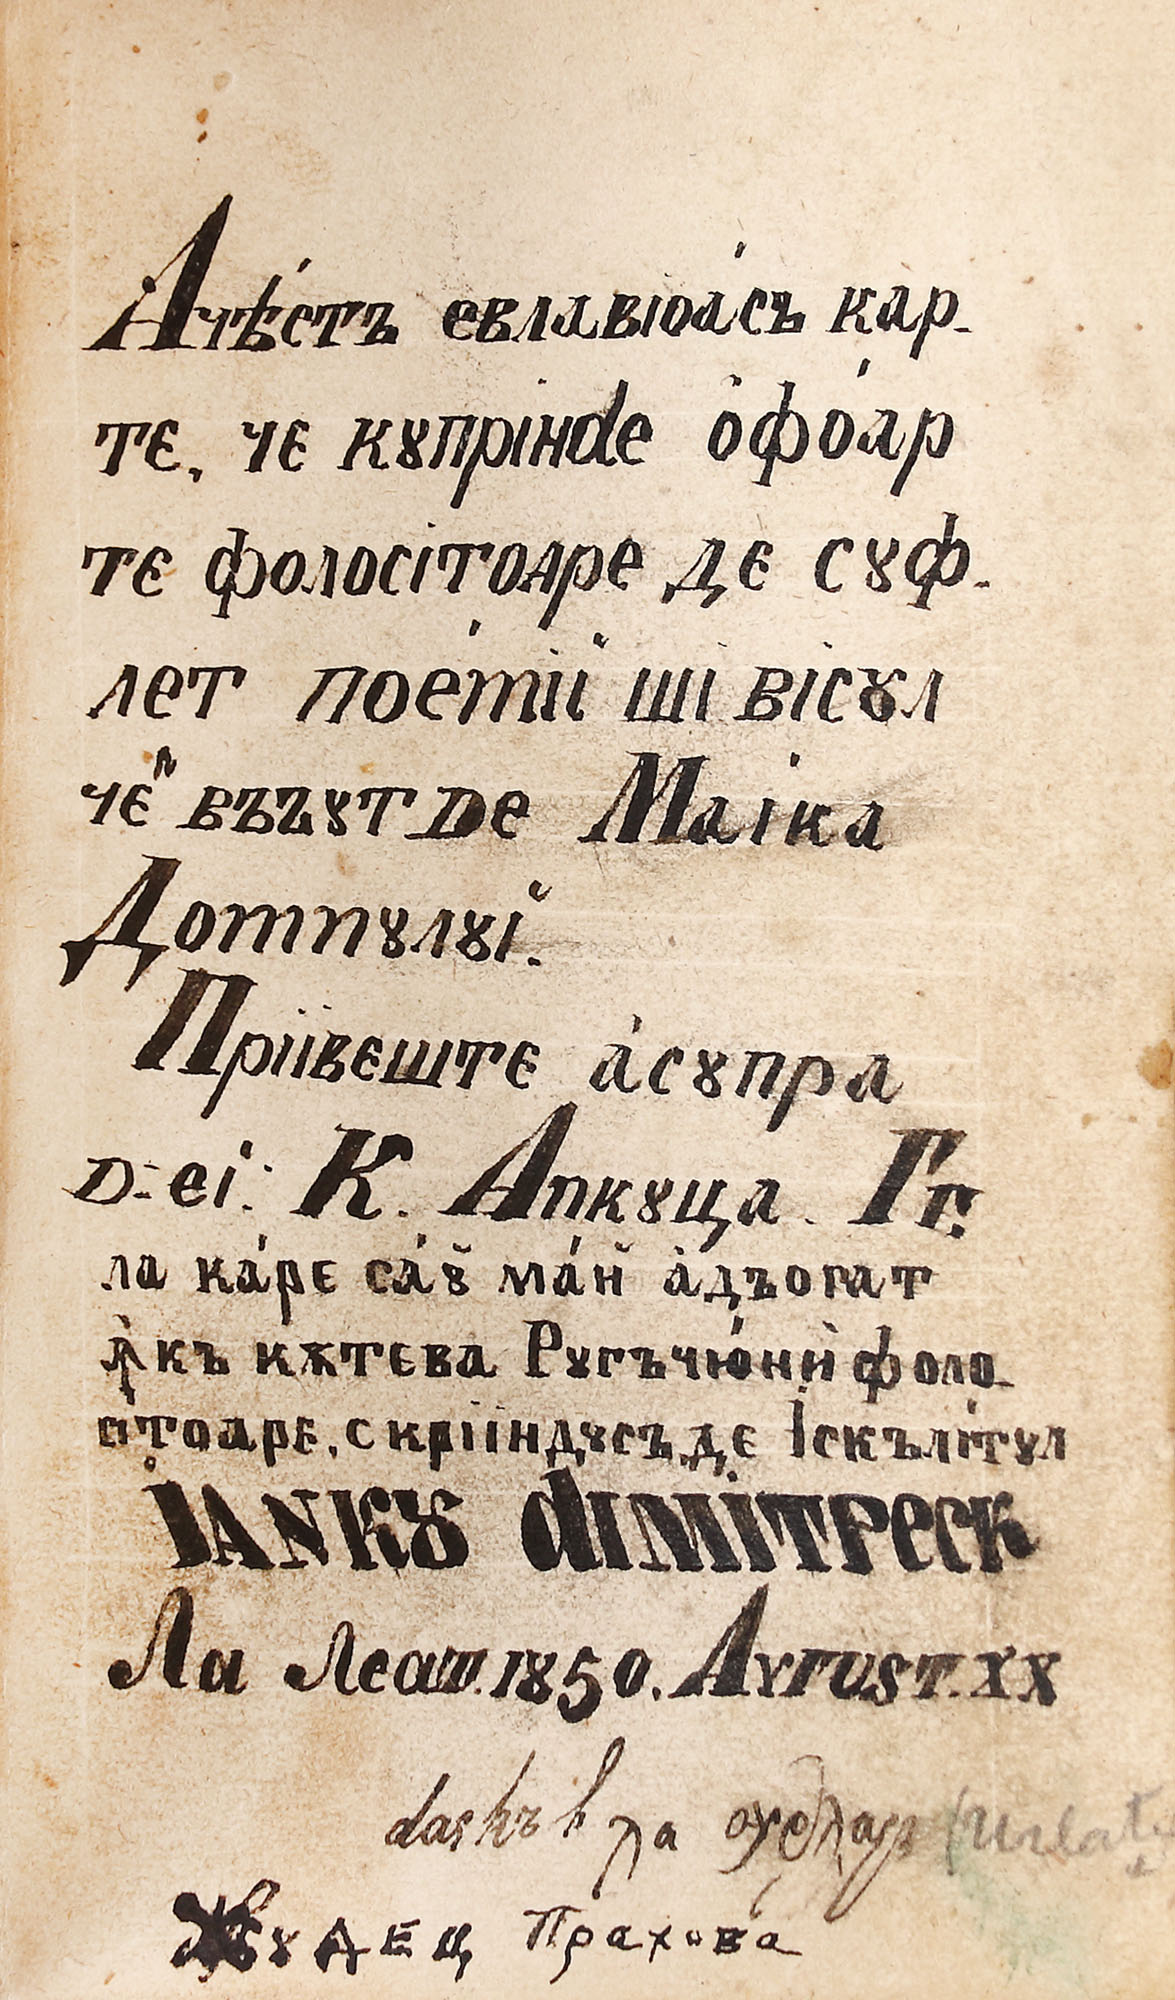 Ачѣ́стъ евлавіоа́съ кар-
те, че кꙋпрінde о̓фоа́р
те фолосітоаре де сꙋф-
лет поеmіĭ ші вісꙋл
чеⁿ въzꙋт De Маіка
Доmnꙋлꙋĭ.
Пріівеште а̓сꙋпра
D: еі: К. Апкꙋца. Гг.
ла ка́ре са́ꙋ̆ ма́й а̓дъогат
ꙟкъ кѫтева Рꙋгъчю́ни̓ фоло-
сітоаре, скрііндꙋсъ, де Іскълі́тꙋл
ІАNКꙋ dІМІТРеск
Ла Леат. 1850. Аѵгusт. XX
daskъл ла
Жꙋдец Прахова